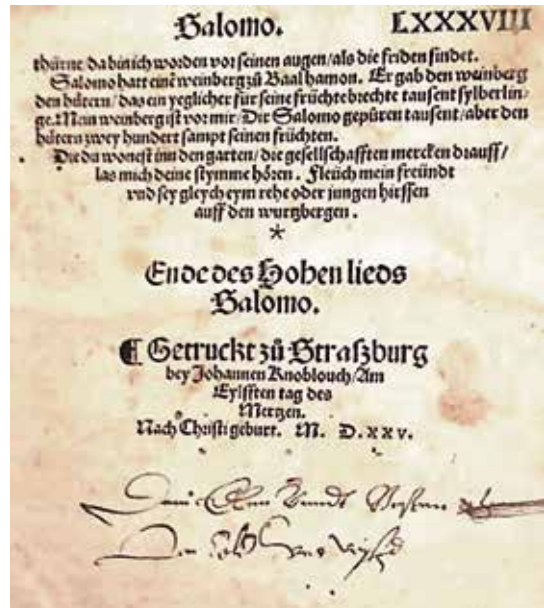 Salomo. LXXXVIII
thürne da bin ich worden vor seinen augen/als die friden findet.
Salomo hatt einẽ weinberg zů Baal hamon. Er gab den weinberg
den hütern/das ein yeglicher für seine früchte brechte tausent sylberlin⸗
ge. Mein weinberg ist vor mir/Dir Salomo gepüren tausent/aber den
hütern zwey hundert sampt seinen früchten.
Die du wonest inn den garten/die gesellschafften mercken drauff/
las mich deine stymme hören. Fleüch mein freündt
vnd sey gleych eym rehe oder jungen hirssen
auff den wurtzbergen.
*
Ende des Hohen lieds
Salomo.
¶ Getruckt zů Straßburg
bey Johannen Knoblouch/Am
Eylfften tag des
Mertzen.
Nach Christi geburt. M. D. xxv.